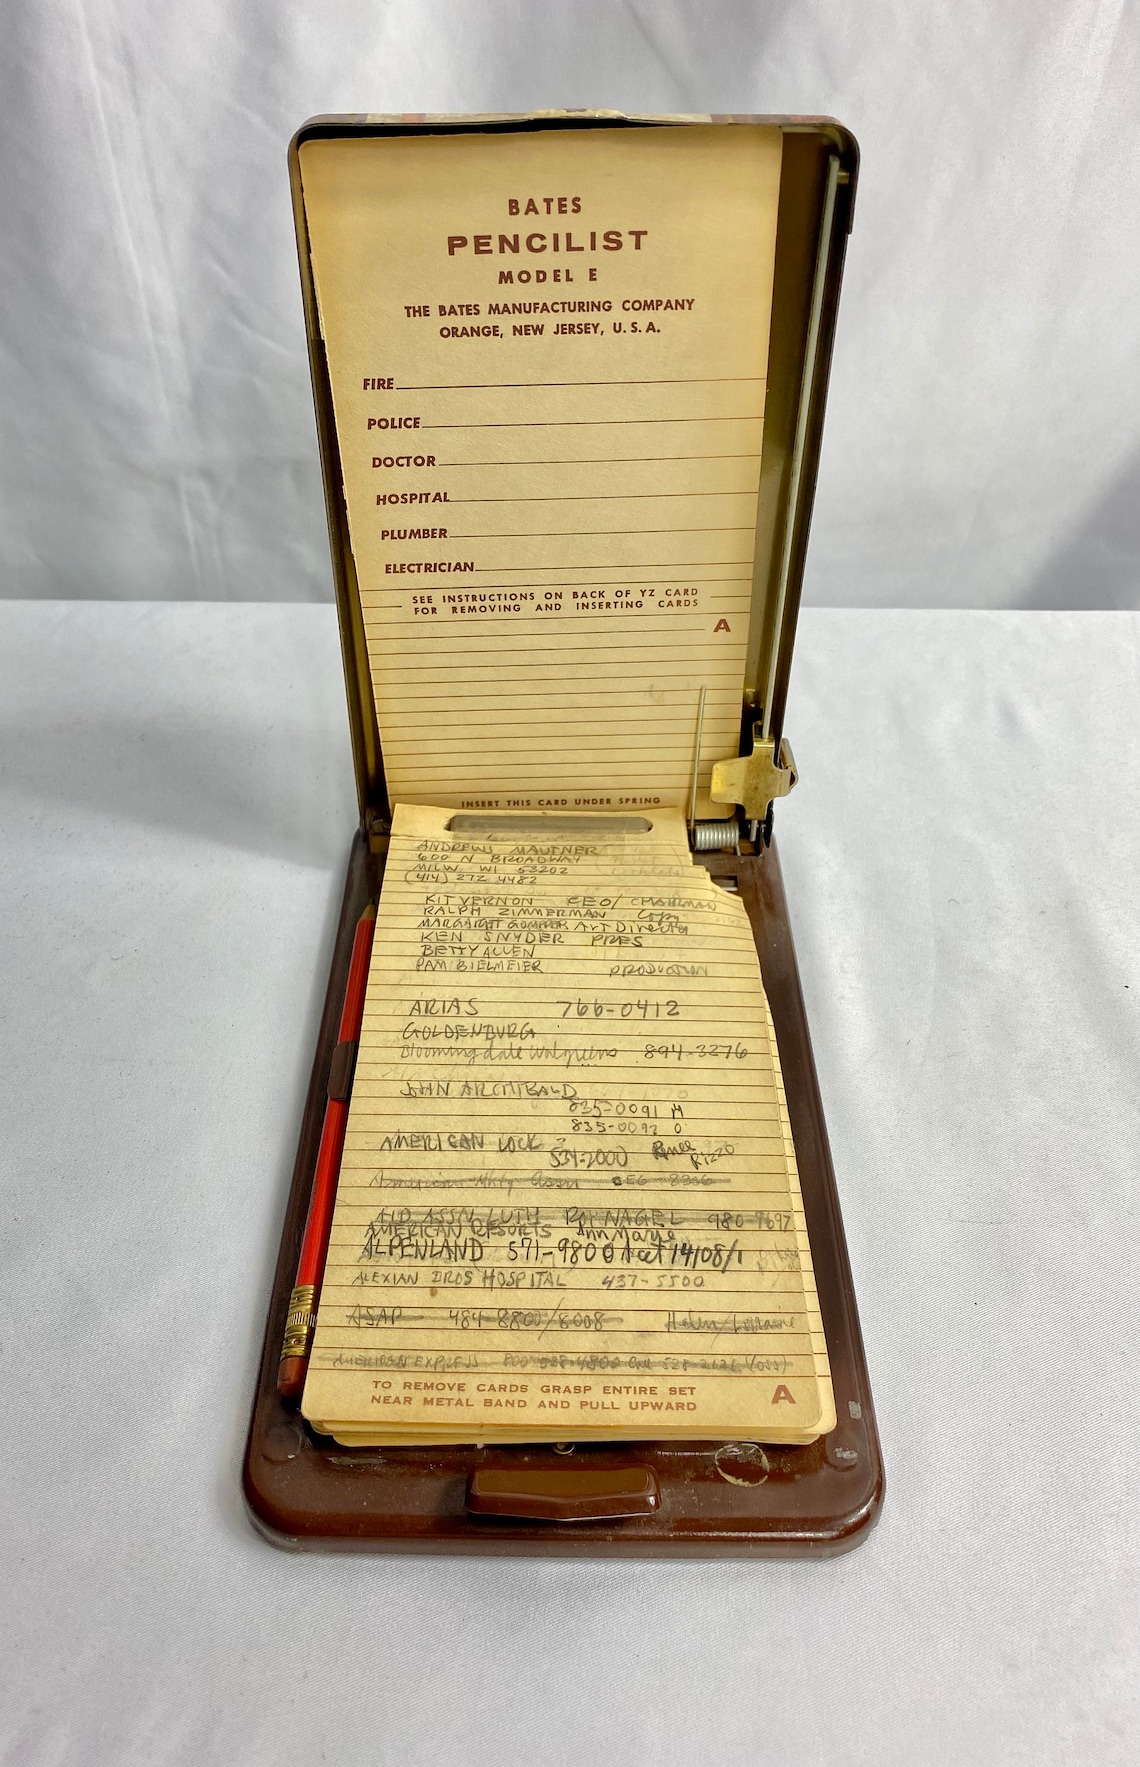 BATES
PENCILIST
MODEL E
THE BATES MANUFACTURING COMPANY
ORANGE, NEW JERSEY, U.S.A.
FIRE
POLICE
DOCTOR
HOSPITAL
PLUMBER
ELECTRICIAN
SEE INSTRUCTIONS ON BACK OF YZ CARD
FOR REMOVING AND INSERTING CARDS
A
INSERT THIS CARD UNDER SPRING
ANDREWS MAUTNER
600 N BROADWAY
MILW. WI 53202
(414) 272 4482
KIT VERNON CEO/CHAIRMAN
RALPH ZIMMERMAN Copy
MARGARET Art Director
KEN SNYDER PRES
BETTY ALLEN
PAM BIELMEIER PRODUCTION
ARIAS 766-0412
GOLDENBURG
Bloomingdale Walgreens 894-3276
JOHN ARCHIBALD
835-0091 H
835-0092 O
AMERICAN LOCK
534-2000 Rizzo
American Mktg Assn
AID ASSN LUTH NAGEL 980-9697
AMERICAN RESORTS AnnMarie
ALPENLAND 571-9800
ALEXIAN BROS HOSPITAL 437-5500
ASAP 484-8800/8008 Helen/Lorraine
AMERICAN EXPRESS 800 528-4800
TO REMOVE CARDS GRASP ENTIRE SET
NEAR METAL BAND AND PULL UPWARD
A